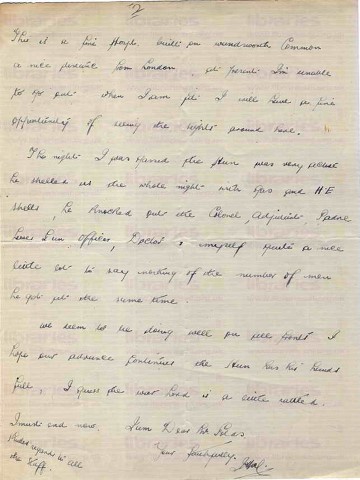 2/
This is a fine Hospl. built on wandsworth Common
a nice distance from London. at present I'm unable
to go out when I am fit I will have a fine
opportunity of seeing the sights around here.
The night I was gassed the Hun was very active
he shelled us the whole night with Gas and HE
shells, he knocked out the Colonel, Adjutant,
Lewis Gun officer, Doctor & myself quite a nice
little lot to say nothing of the number of men
he got at the same time.
we seem to be doing well on all fronts I
hope our advance continues the Hun has his hands
full, I guess the war Lord is a little rattled.
I must end now. I am Dear Mr
Your faithfully.
Kindest regards to all
the Staff.